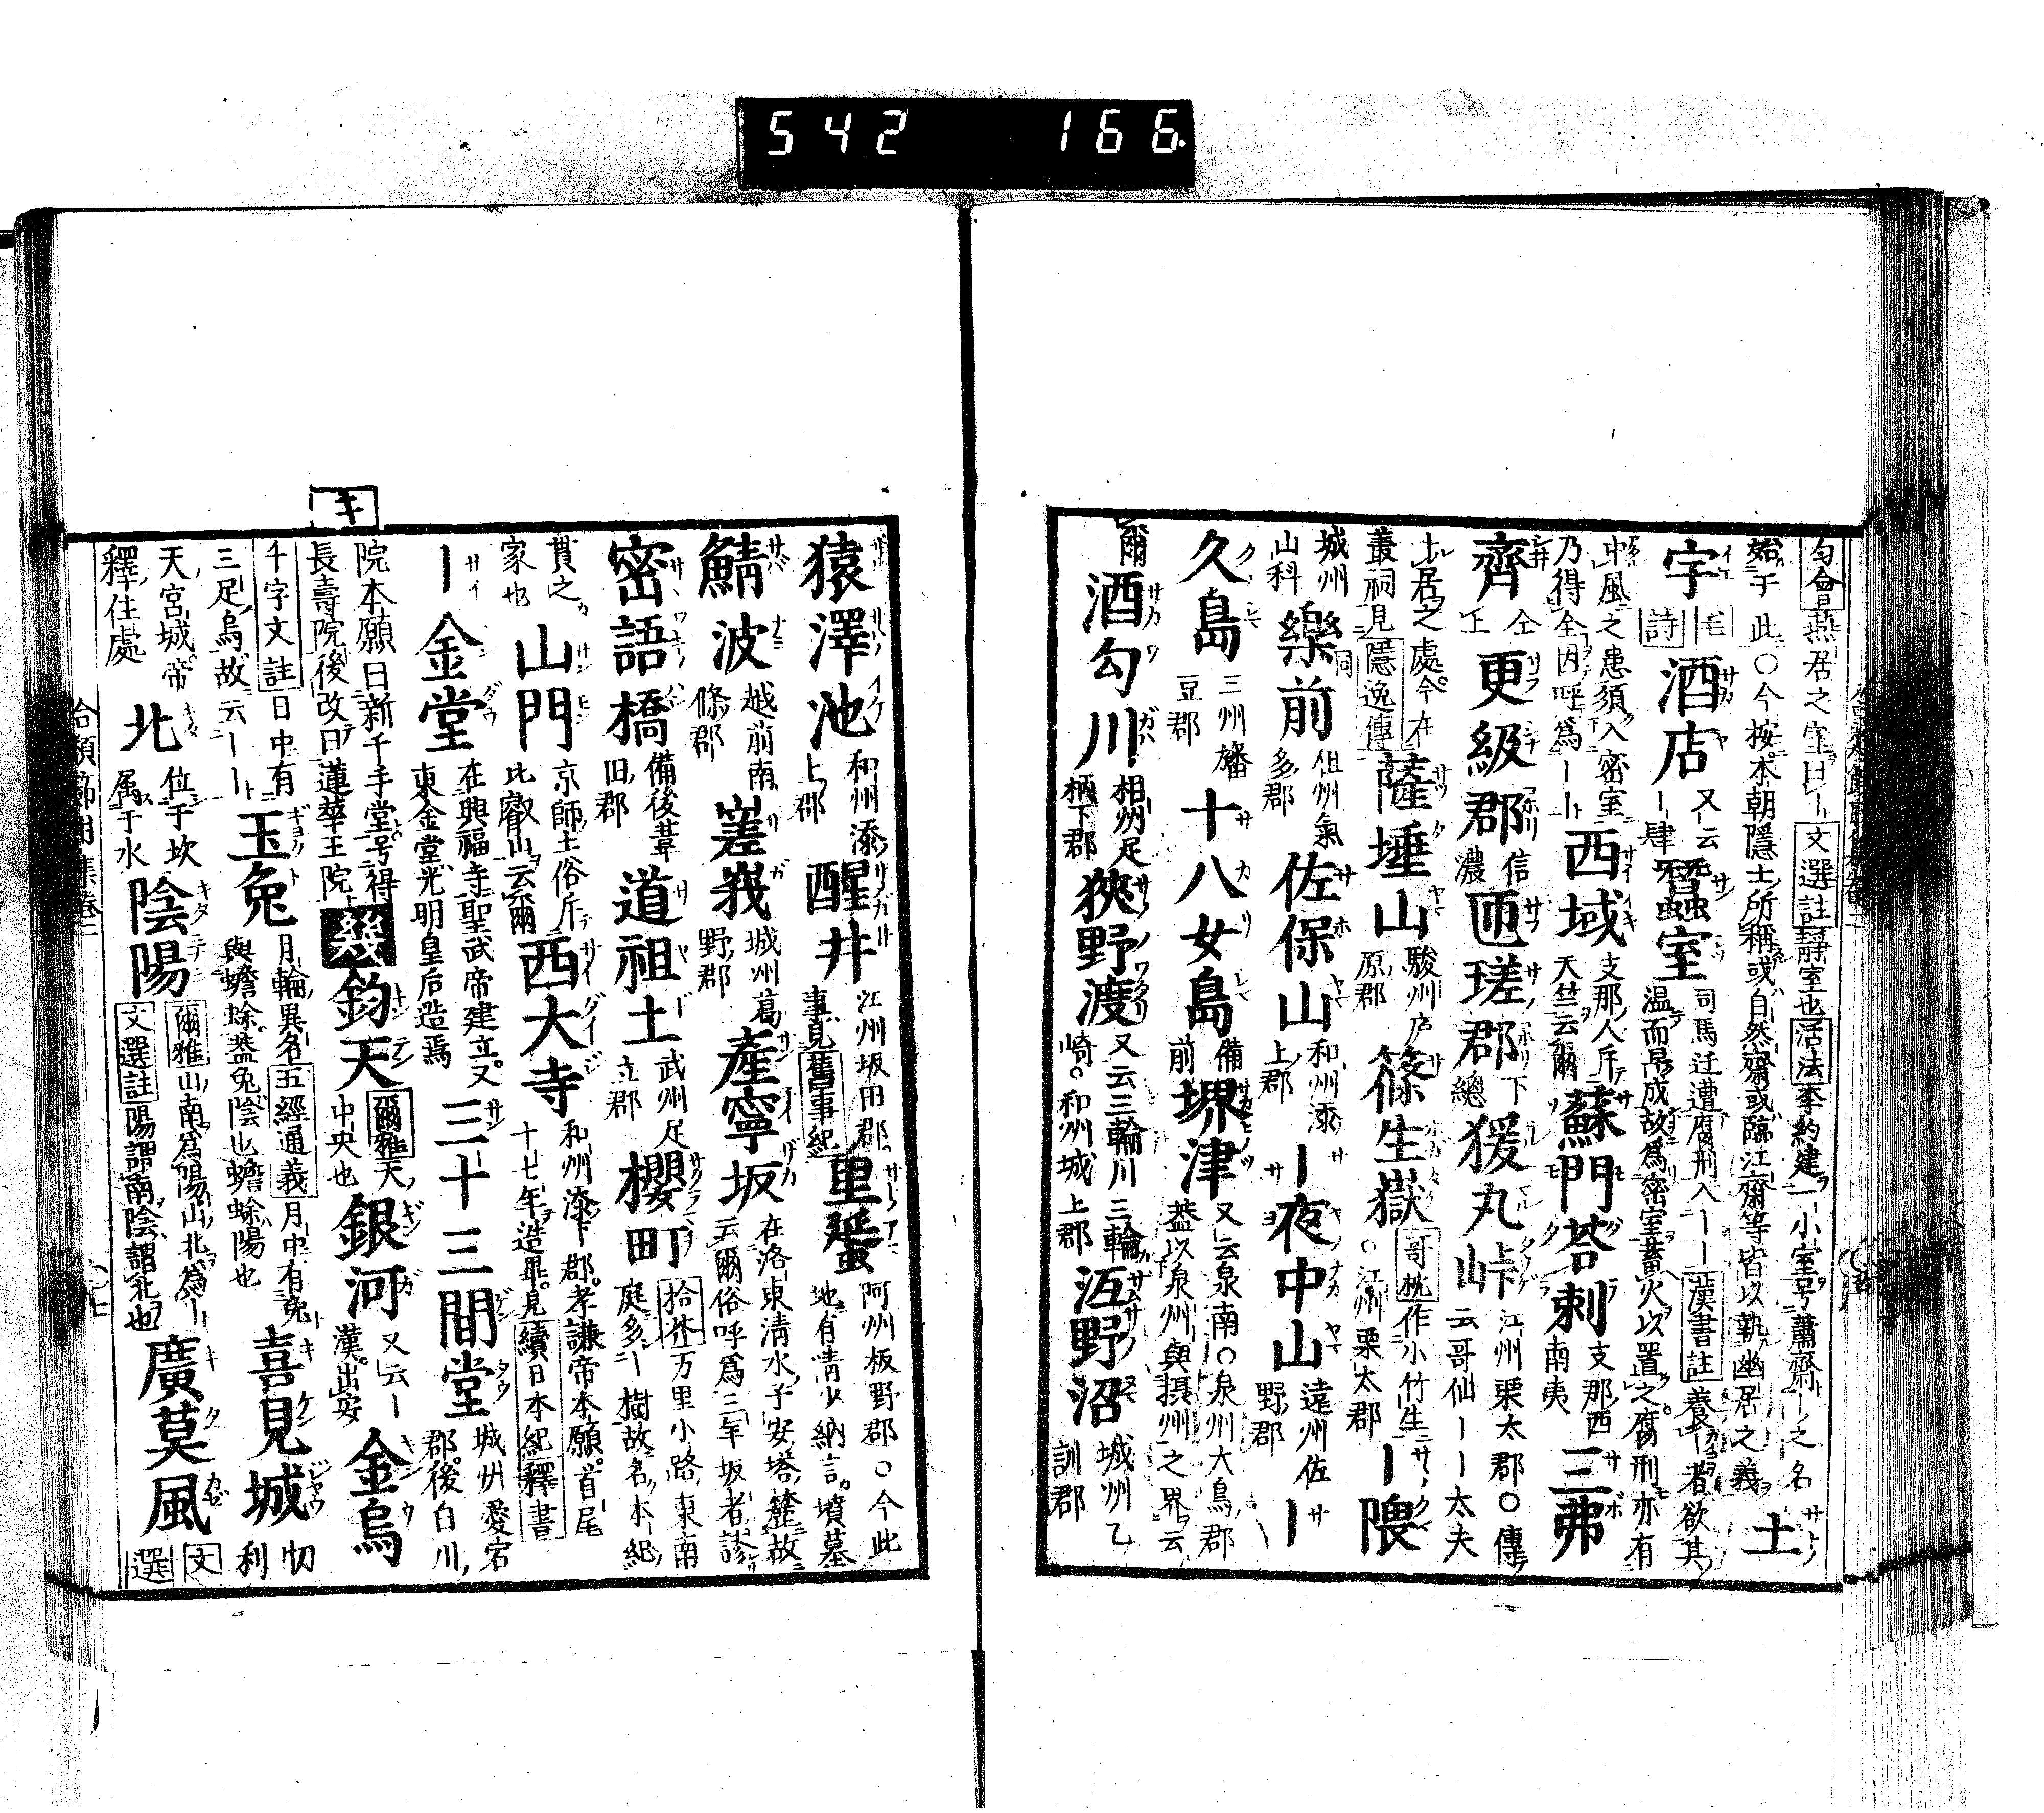 542 166
匀會燕居之室曰丨文選註靜室也活法李約建一小室号蕭齋丨之名
始于此○今按本朝隱士所稱或自然齋或臨江齋等皆以執幽居之義 土
宇 毛詩 酒店 又云丨肆 蠶室 司馬迁遭腐刑入丨丨漢書註養丨者欲其温而早成故爲密室蓄火以置之腐刑亦有
中風之患須入密室乃得全因呼爲丨丨 西域 支那人斥天竺云爾 蘇門荅剌 支那西南夷 三弗
齊 仝上 更級郡 信濃 匝瑳郡 下總 猨丸峠 江州栗太郡○傳云哥仙丨丨太夫
居之處今在叢祠見隱逸傳 薩埵山 駿州庐原郡 篠生嶽 哥枕作小竹生○江州栗太郡 丨隈
城州山科 樂前 但州氣多郡 佐保山 和州添上郡 丨夜中山 遠州佐野郡 丨
久島 三州幡豆郡 十八女島 備前 堺津 又云泉南○泉州大鳥郡蓋以泉州與摂州之界云
爾 酒勾川 相州足柄下郡 狹野渡 又云三輪川三輪崎○和州城上郡 沍野沼 城州乙訓郡
猿澤池 和州添上郡 醒井 江州坂田郡事見舊事紀 里蜑 阿州板野郡○今此地有清少納言墳墓
鯖波 越前南條郡 嵳峩 城州葛野郡 產寧坂 在洛東清水子安塔麓故云爾俗呼爲三年坂者謬
密語橋 備後葦田郡 道祖土 武州足立郡 櫻町 拾芥万里小路東南庭多丨樹故名本紀
貫之家也 山門 京師土俗斥比叡山云爾 西大寺 和州添下郡孝謙帝本願首尾十七年造畢見續日本紀釋書
丨金堂 在興福寺聖武帝建立又東金堂光明皇后造焉 三十三間堂 城州愛宕郡後白川
キ
院本願曰新千手堂号得長壽院後改曰蓮華王院 幾 鈞天 爾雅天中央也 銀河 又云丨漢出安 金烏
千字文註日中有三足烏故云丨丨 玉兔 月輪異名五經通義月中有兔與蟾蜍蓋兔陰也蟾蜍陽也 喜見城 忉利
天宮城帝釋住處 北 位于坎属于水 陰陽 爾雅山南爲陽山北爲丨文選註陽謂南陰謂北也 廣莫風 文選
合類節用集卷二